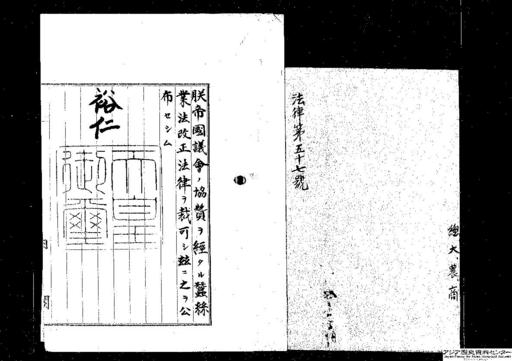 法律第五十七號
總大農商
朕帝國議會ノ協贊ヲ經タル蠶絲
業法改正法律ヲ裁可シ玆ニ之ヲ公
布セシム
裕仁
天皇
御璽
アジア歴史資料センター